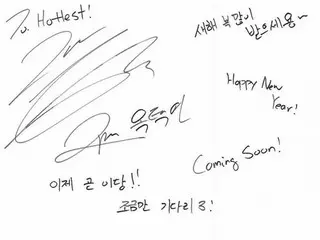 To Hottest!
새해 복 많이
받으세용~
Happy New
Year!
2pm 옥택연
Coming Soon!
이제 곧 이당!!
조금만 기다리3!